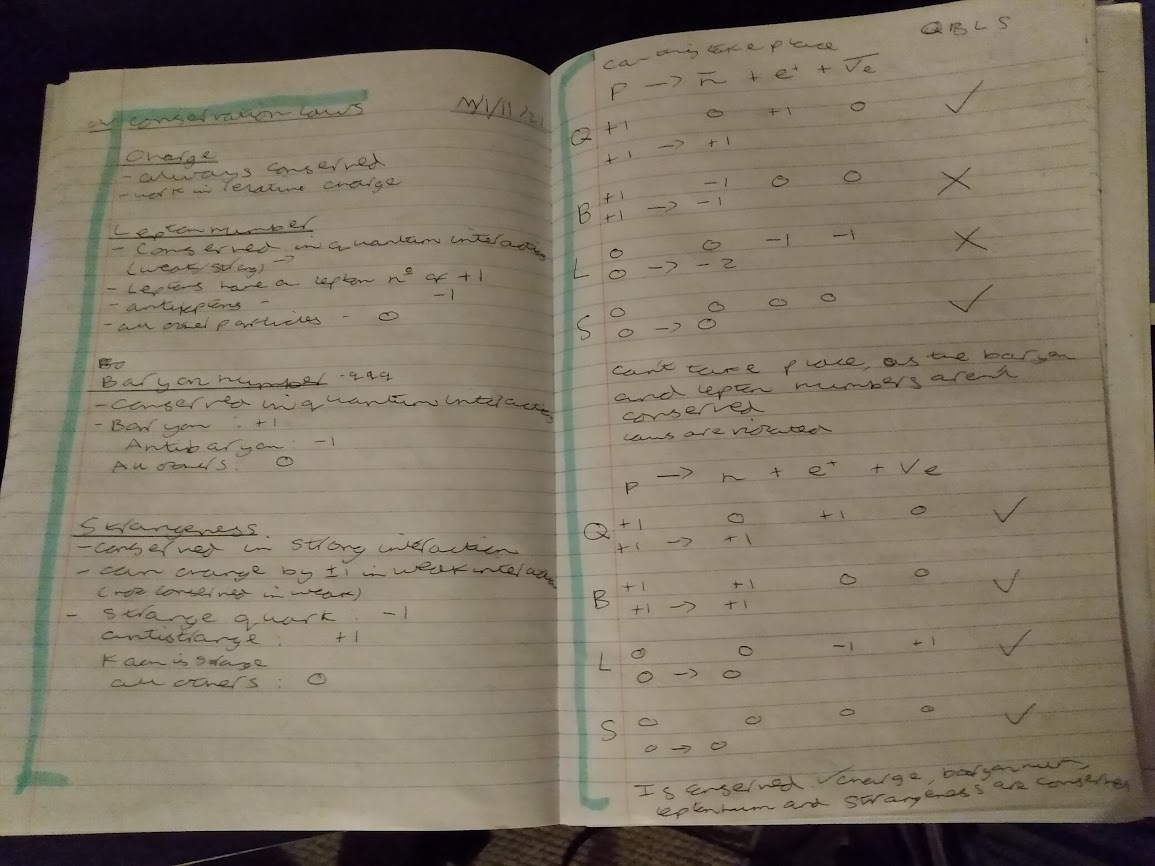 conservation laws
Charge
- always conserved
- work in relative charge
Lepton number
- Conserved in quantum interaction
(weak/strong) →
- Leptons have a lepton nº of +1
- antileptons - -1
- all other particles - 0
Baryon number - qqq
- conserved in quantum interactions
- Baryon : +1
Antibaryon : -1
All others : 0
Strangeness
- conserved in strong interaction
- can change by ±1 in weak interaction
(not conserved in weak)
- Strange quark : -1
antistrange : +1
Kaon is strange
all others : 0
Q B L S
can this take place
p → n̅ + e⁺ + v̅e
Q +1 0 +1 0 ✓
+1 → +1
B +1 -1 0 0 ✗
+1 → -1
L 0 0 -1 -1 ✗
0 → -2
S 0 0 0 0 ✓
0 → 0
can't take place, as the baryon
and lepton numbers aren't
conserved
laws are violated
p → n + e⁺ + ve
Q +1 0 +1 0 ✓
+1 → +1
B +1 +1 0 0 ✓
+1 → +1
L 0 0 -1 +1 ✓
0 → 0
S 0 0 0 0 ✓
0 → 0
Is conserved ✓ charge, baryon num,
lepton num and strangeness are conserved